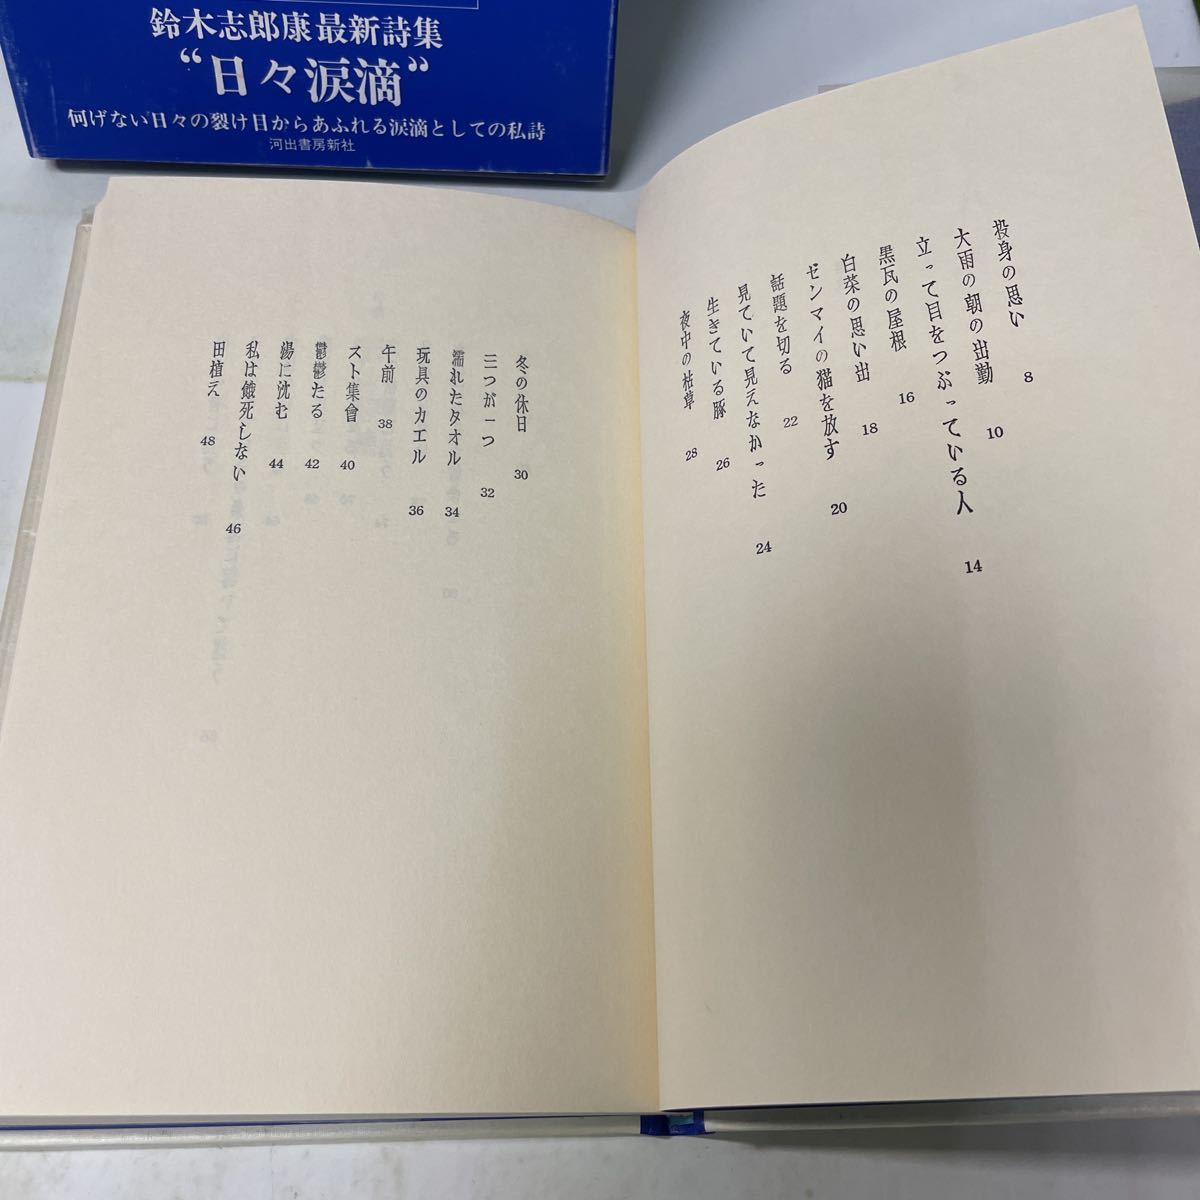 鈴木志郎康最新詩集
“日々涙滴”
何げない日々の裂け目からあふれる涙滴としての私詩
河出書房新社
投身の思い 8
大雨の朝の出勤 10
立って目をつぶっている人 14
黒瓦の屋根 16
白菜の思い出 18
ゼンマイの猫を放す 20
話題を切る 22
見ていて見えなかった 24
生きている豚 26
夜中の枯草 28
冬の休日 30
三つが一つ 32
濡れたタオル 34
玩具のカエル 36
午前 38
スト集會 40
鬱鬱たる 42
湯に沈む 44
私は餓死しない 46
田植え 48